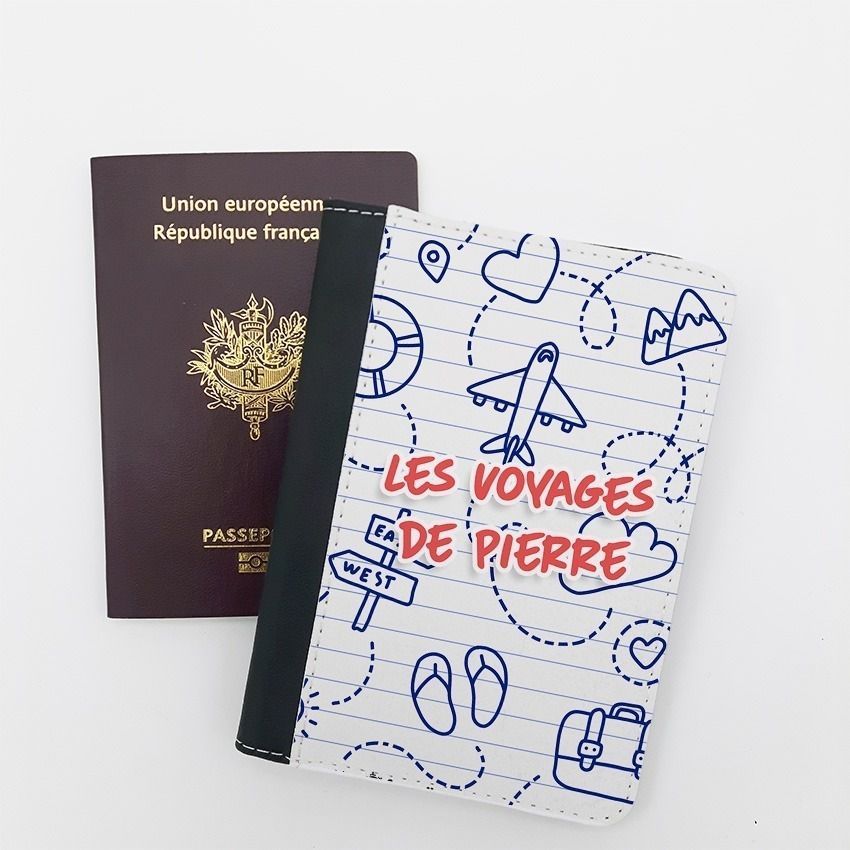 Union européenn
République frança
RF
PASSEP
LES VOYAGES
DE PIERRE
EA
WEST